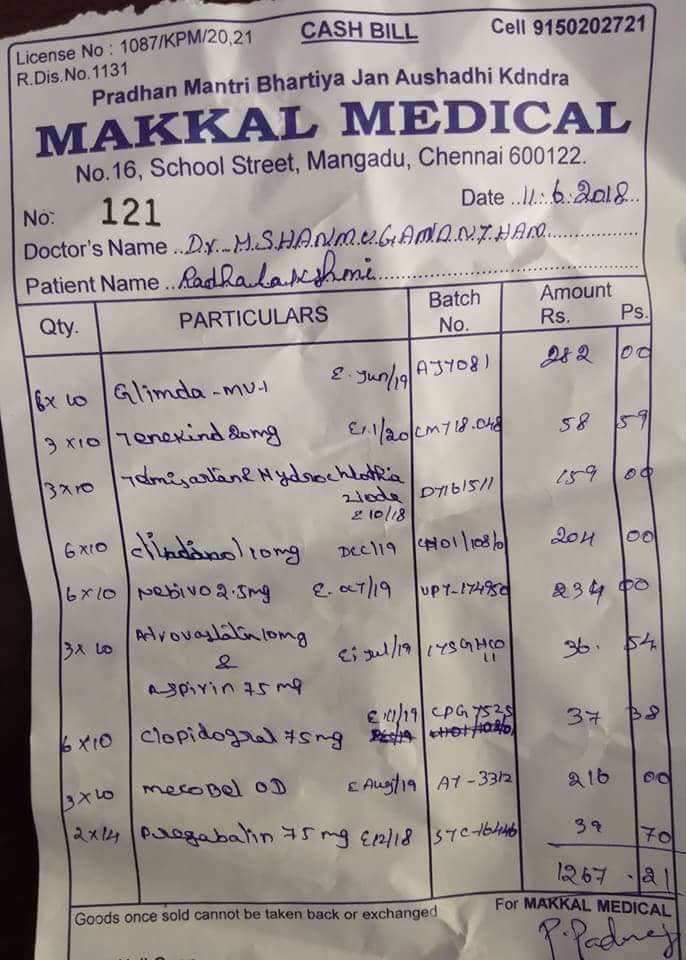 License No : 1087/KPM/20,21 CASH BILL Cell 9150202721
R.Dis.No.1131
Pradhan Mantri Bhartiya Jan Aushadhi Kdndra
MAKKAL MEDICAL
No.16, School Street, Mangadu, Chennai 600122.
No: 121 Date 11.6.2018
Doctor's Name Dr. M.SHANMUGANANTHAM
Patient Name Radhalakshmi
Qty. PARTICULARS Batch No. Amount Rs. Ps.
6x10 Glimda-MV-1 E.Jun/19 AJY081 282 00
3x10 Tenekind 20mg E.1/20 CM718.048 58 59
3x10 Telmisartan & Hydrochlothia
ziode DT161511 159 00
E 10/18
6x10 10mg DEC/19 204 00
6x10 Nebivo 2.5mg E.OCT/19 UPT-174950 234 00
3x10 Atrovastatin 10mg E.Jul/19 36. 54
&
Aspirin 75mg
6x10 Clopidogral 75mg /19 CPG7525 37 38
3x10 Mecobel OD E Aug/19 AT-3312 216 00
2x14 Pregabalin 75mg E12/18 STC-16446 39 70
1267.21
Goods once sold cannot be taken back or exchanged For MAKKAL MEDICAL